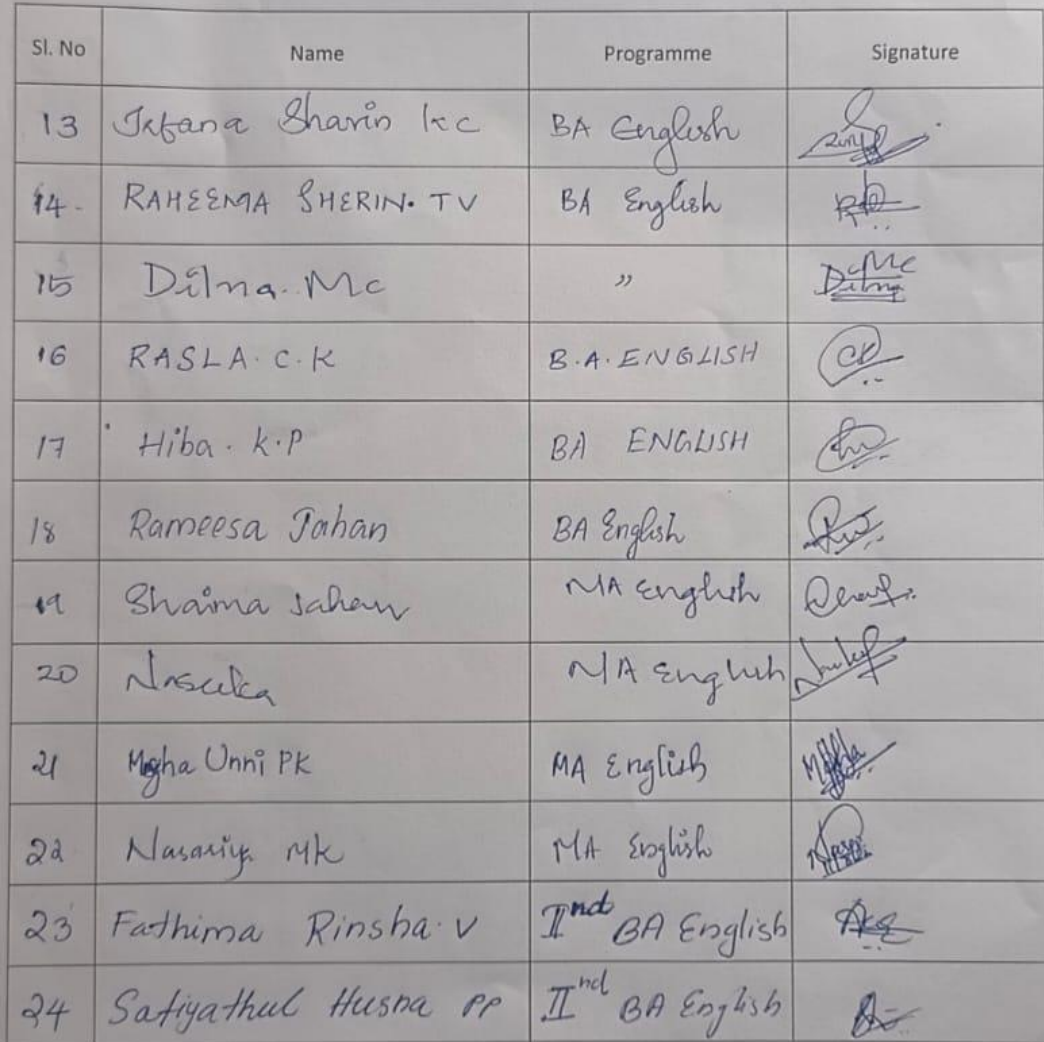 Sl. No Name Programme Signature
13 Irfana Sharin kc BA English
14. RAHEEMA SHERIN. TV BA English
15 Dilna. Mc " Dilna Mc
16 RASLA. C. K B.A. ENGLISH CK
17 Hiba. K.P BA ENGLISH
18 Rameesa Jahan BA English
19 Shaima Jahan MA English
20 MA English
21 Megha Unni PK MA English
22 Nasariya MK MA English
23 Fathima Rinsha. V IInd BA English
24 Safiyathul Husna PP IInd BA English